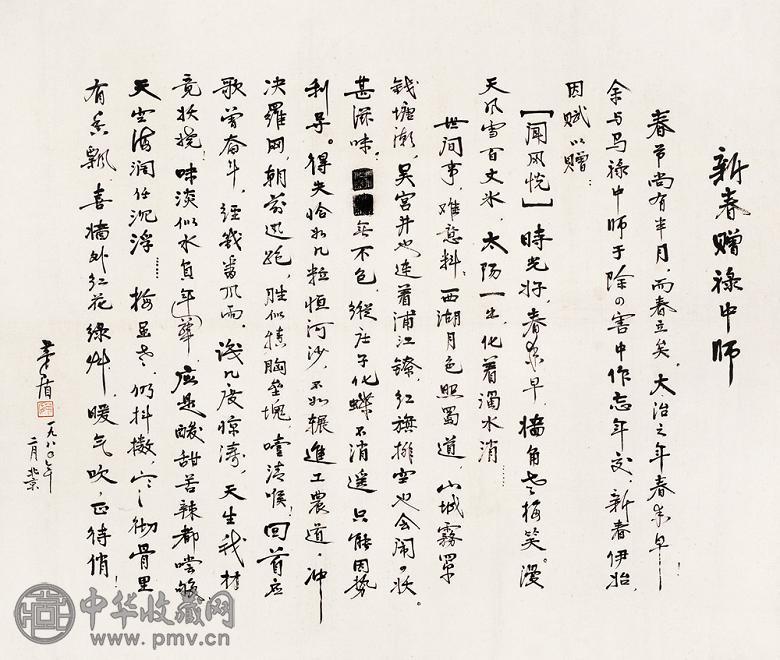 新春赠禄中师
春节尚有半月，而春立矣。大治之年春来早！
余与马禄中师于除四害中作忘年交，新春伊始，
因赋以赠：
【闻风悦】时光好，春来早，墙角老梅笑。漫
天风雪百丈冰，太阳一出，化着浊水消……
世间事，难意料；西湖月色照蜀道，山城雾罩
钱塘潮，吴宫井也连着浦江镣，红旗挂空也会闹个妖。
甚滋味，无不包，纵庄子化蝶不逍遥，只能因势
利导。得失恰如几粒恒河沙，不如辗进工农道，冲
决罗网，朝前迅跑，胜似填胸垒块，噎清喉！回首应
歌曾奋斗，经几番风雨，洗几度惊涛，天生我材
竟妖娆！味淡似水负年华，应是酸甜苦辣都尝够
天空海阔任沉浮……梅虽老，仍抖擞，寒彻骨里
有香飘，喜墙外红花绿草，暖气吹，正待俏！
茅盾
一九八〇年
二月北京
中华收藏网
www.pmv.cn